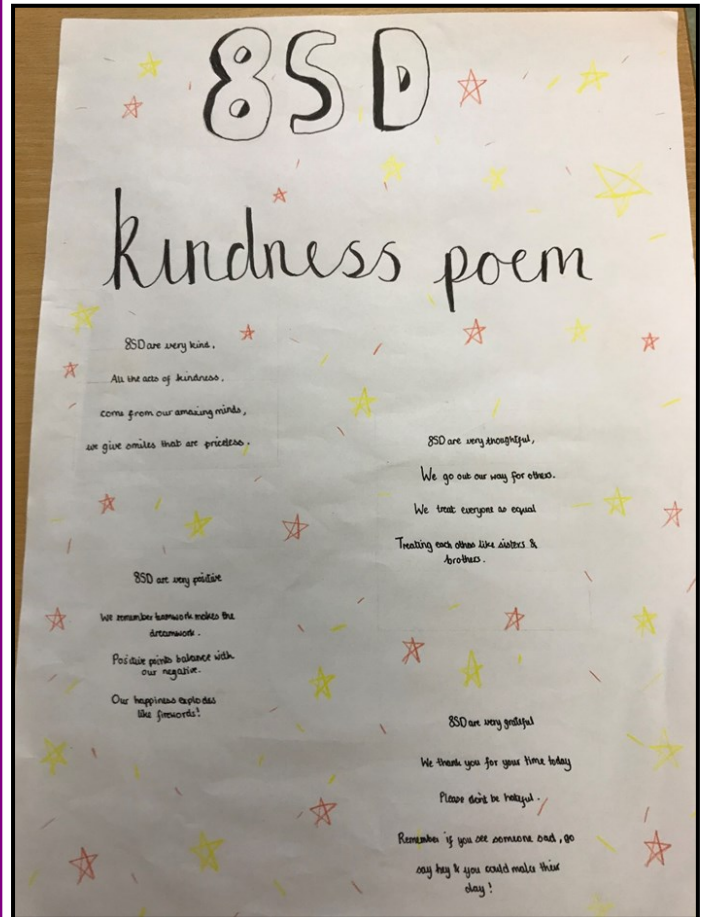 8SD
kindness poem
8SD are very kind,
All the acts of kindness,
come from our amazing minds,
we give smiles that are priceless.
8SD are very thoughtful,
We go out our way for others.
We treat everyone as equal
Treating each other like sisters &
brothers.
8SD are very positive
We remember teamwork makes the
dreamwork.
Positive points balance with
our negative.
Our happiness explodes
like fireworks!
8SD are very grateful
We thank you for your time today
Please don't be hateful.
Remember if you see someone sad, go
say hey & you could make their
day!